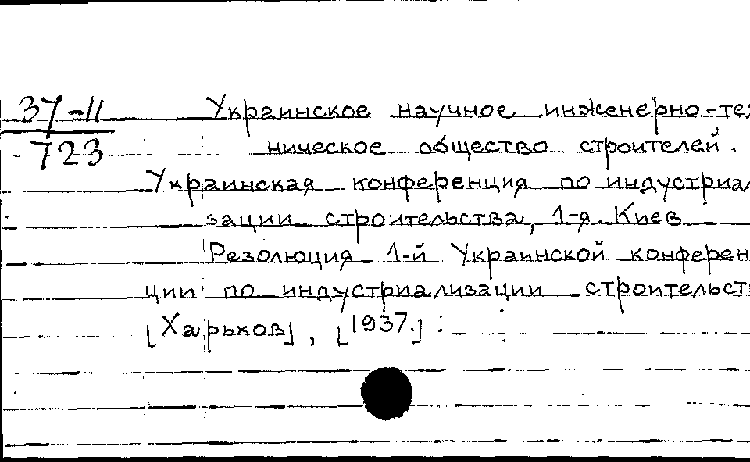 37-11 Украинское научное инженерно-тех
723 ническое общество строителей.
Украинская конференция по индустриал
зации строительства, 1-я. Киев
Резолюция 1-й Украинской конферен
ции по индустриализации строительст
[Харьков], [1937.]